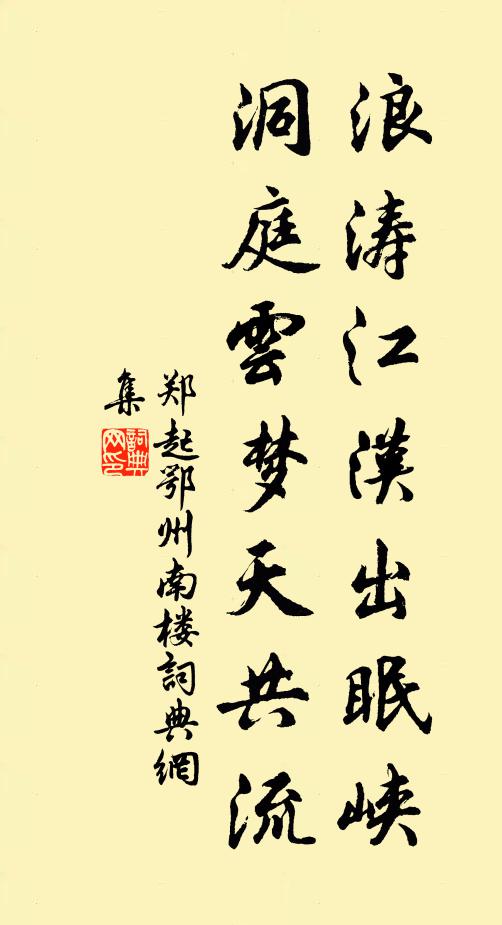 浪涛江漢出眠峡
洞庭雲梦天共流
郑起鄂州南楼詞典網
集
詞典网印